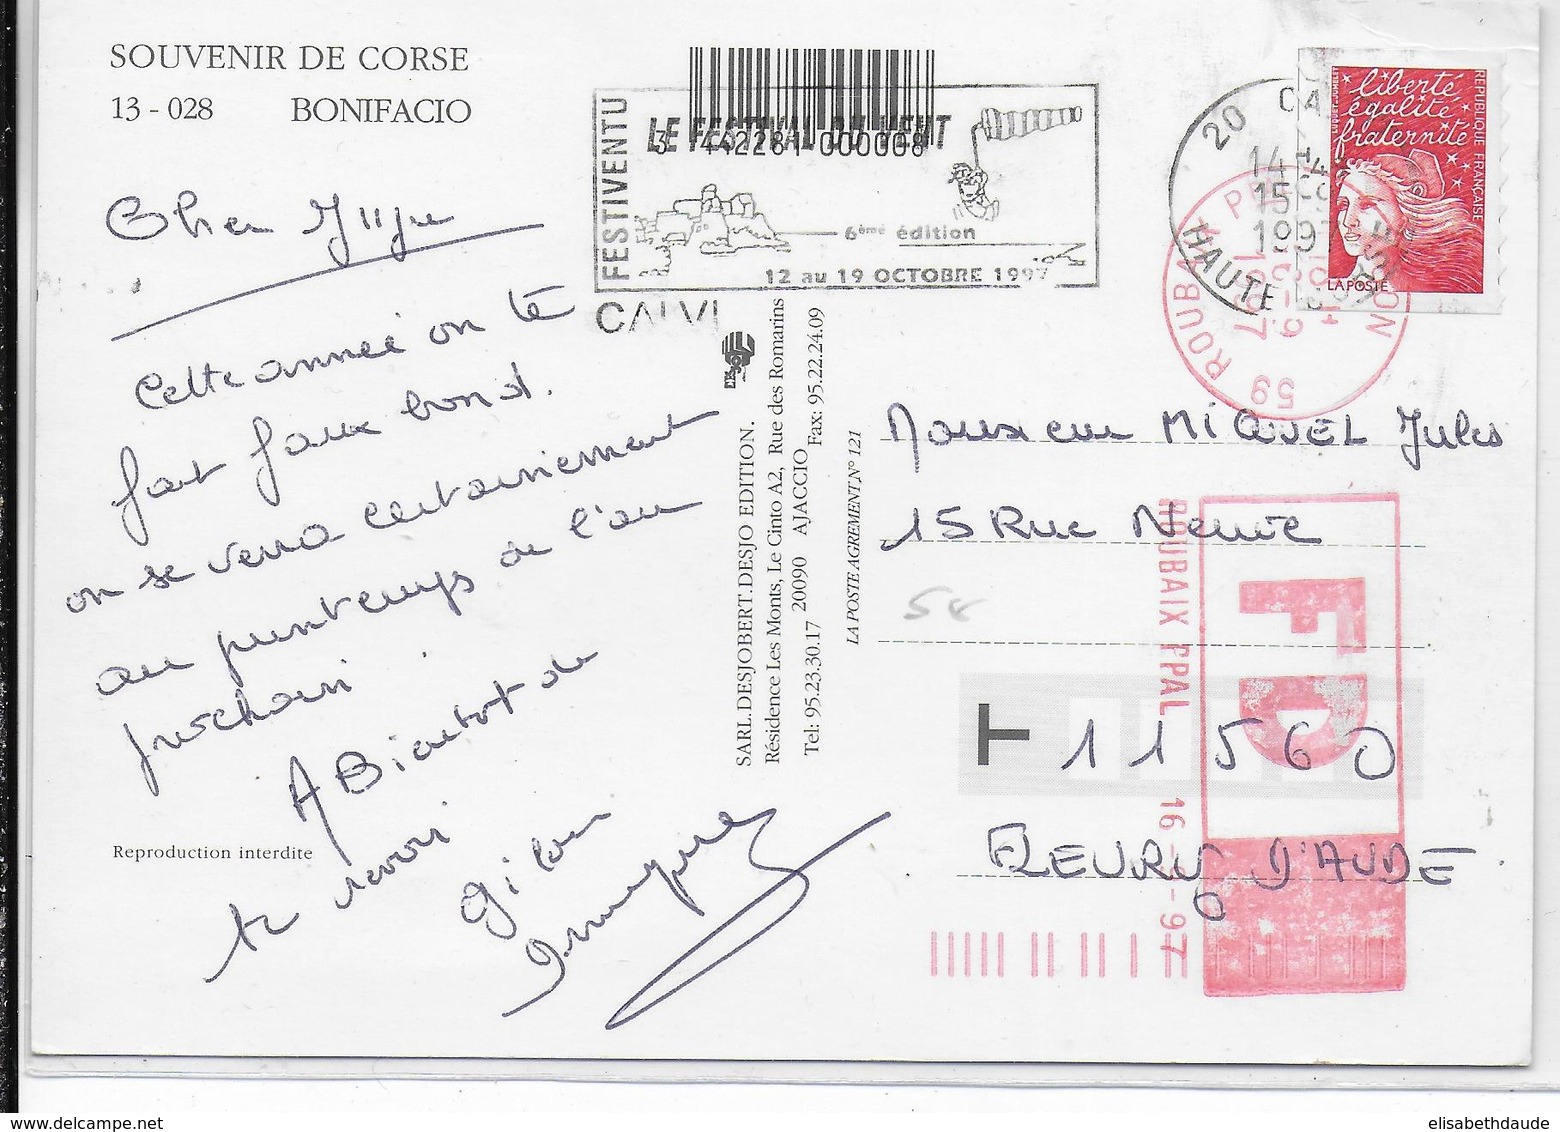 SOUVENIR DE CORSE
13 - 028 BONIFACIO
Cher
Cette année on te
fait faux bond.
on se verra certainement
au printemps de l'an
prochain.
A Bientot de
te revoir
3 442281 000008
FESTIVENTU
LE FESTIVAL DU VENT
6ème édition
12 au 19 OCTOBRE 1997
CALVI
20 CA
14 H
15
1997
HAUTE
59 ROUBAIX
1997
liberté
égalité
fraternité
REPUBLIQUE FRANÇAISE
LA POSTE
SARL.DESJOBERT.DESJO EDITION.
Résidence Les Monts, Le Cinto A2, Rue des Romarins
20090 AJACCIO
Tel: 95.23.30.17 Fax: 95.22.24.09
LA POSTE AGREMENT N° 121
Monsieur MIQUEL Jules
15 Rue Neuve
T 11560
FLEURY D'AUDE
ROUBAIX PPAL 16-97
FD
Reproduction interdite
elisabethdaude